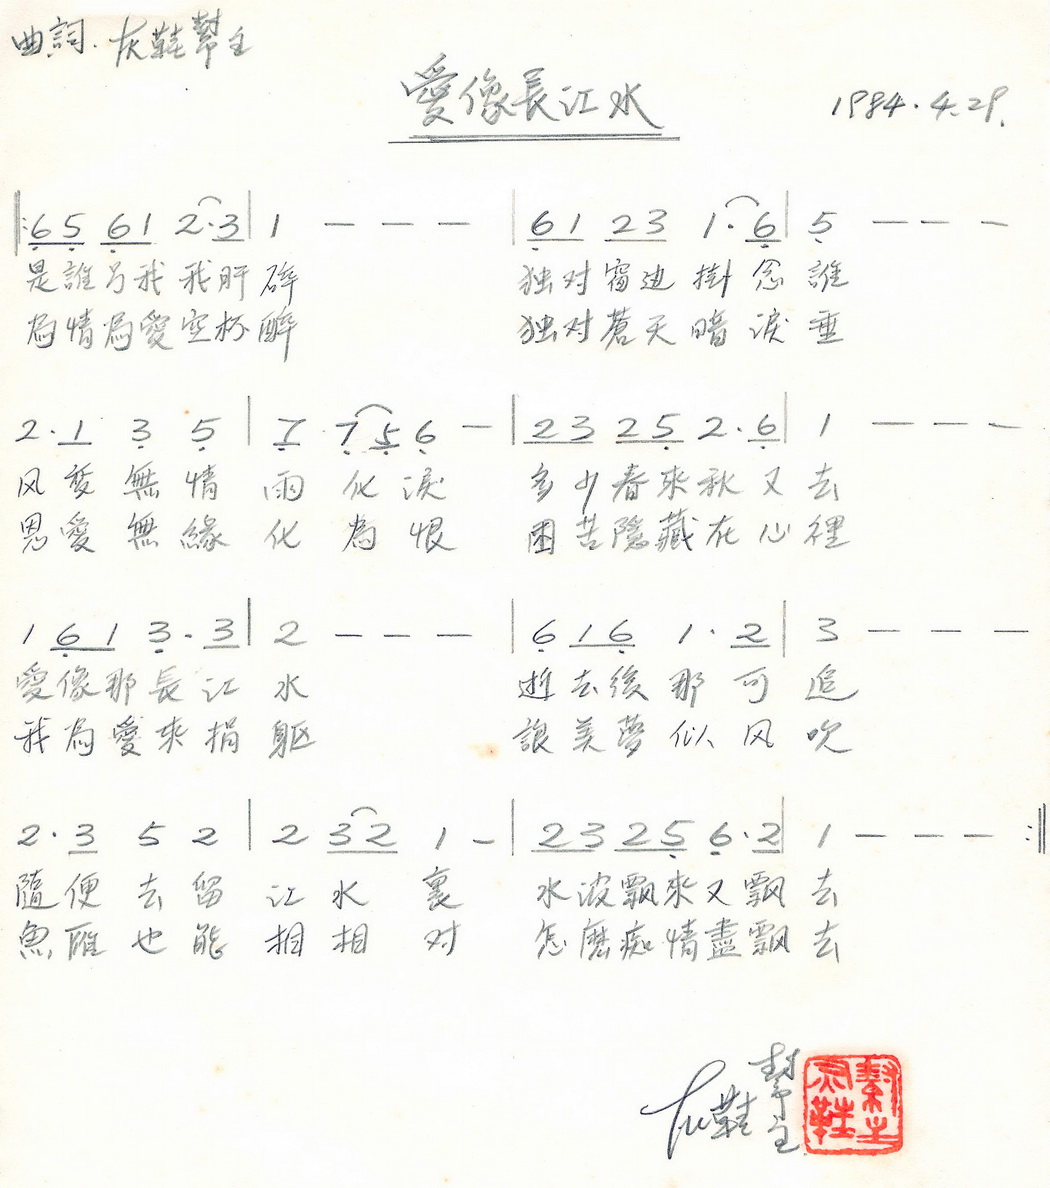 曲詞.灰鞋幫主
愛像長江水
1984.4.29.
‖:6 5 6 1 2·3 | 1 — — — | 6 1 2 3 1·6 | 5 — — —
是誰 我 我肝碎 独对窗边掛念誰
為情為愛空杯醉 独对蒼天暗淚垂
2·1 3 5 | 7 7 5 6 — | 2 3 2 5 2·6 | 1 — — —
风 無情雨化淚 多少春來秋又去
恩愛無緣化為恨 困苦隱藏在心裡
1 6 1 3·3 | 2 — — — | 6 1 6 1·2 | 3 — — —
愛像那長江水 逝去後那可追
我為愛來捐軀 讓美夢似风吹
2·3 5 2 | 2 3 2 1 — | 2 3 2 5 6·2 | 1 — — — :‖
隨便去留江水裏 水波飄來又飄去
魚雁也能相相对 怎麽痴情盡飄去
灰鞋幫主
灰鞋幫主